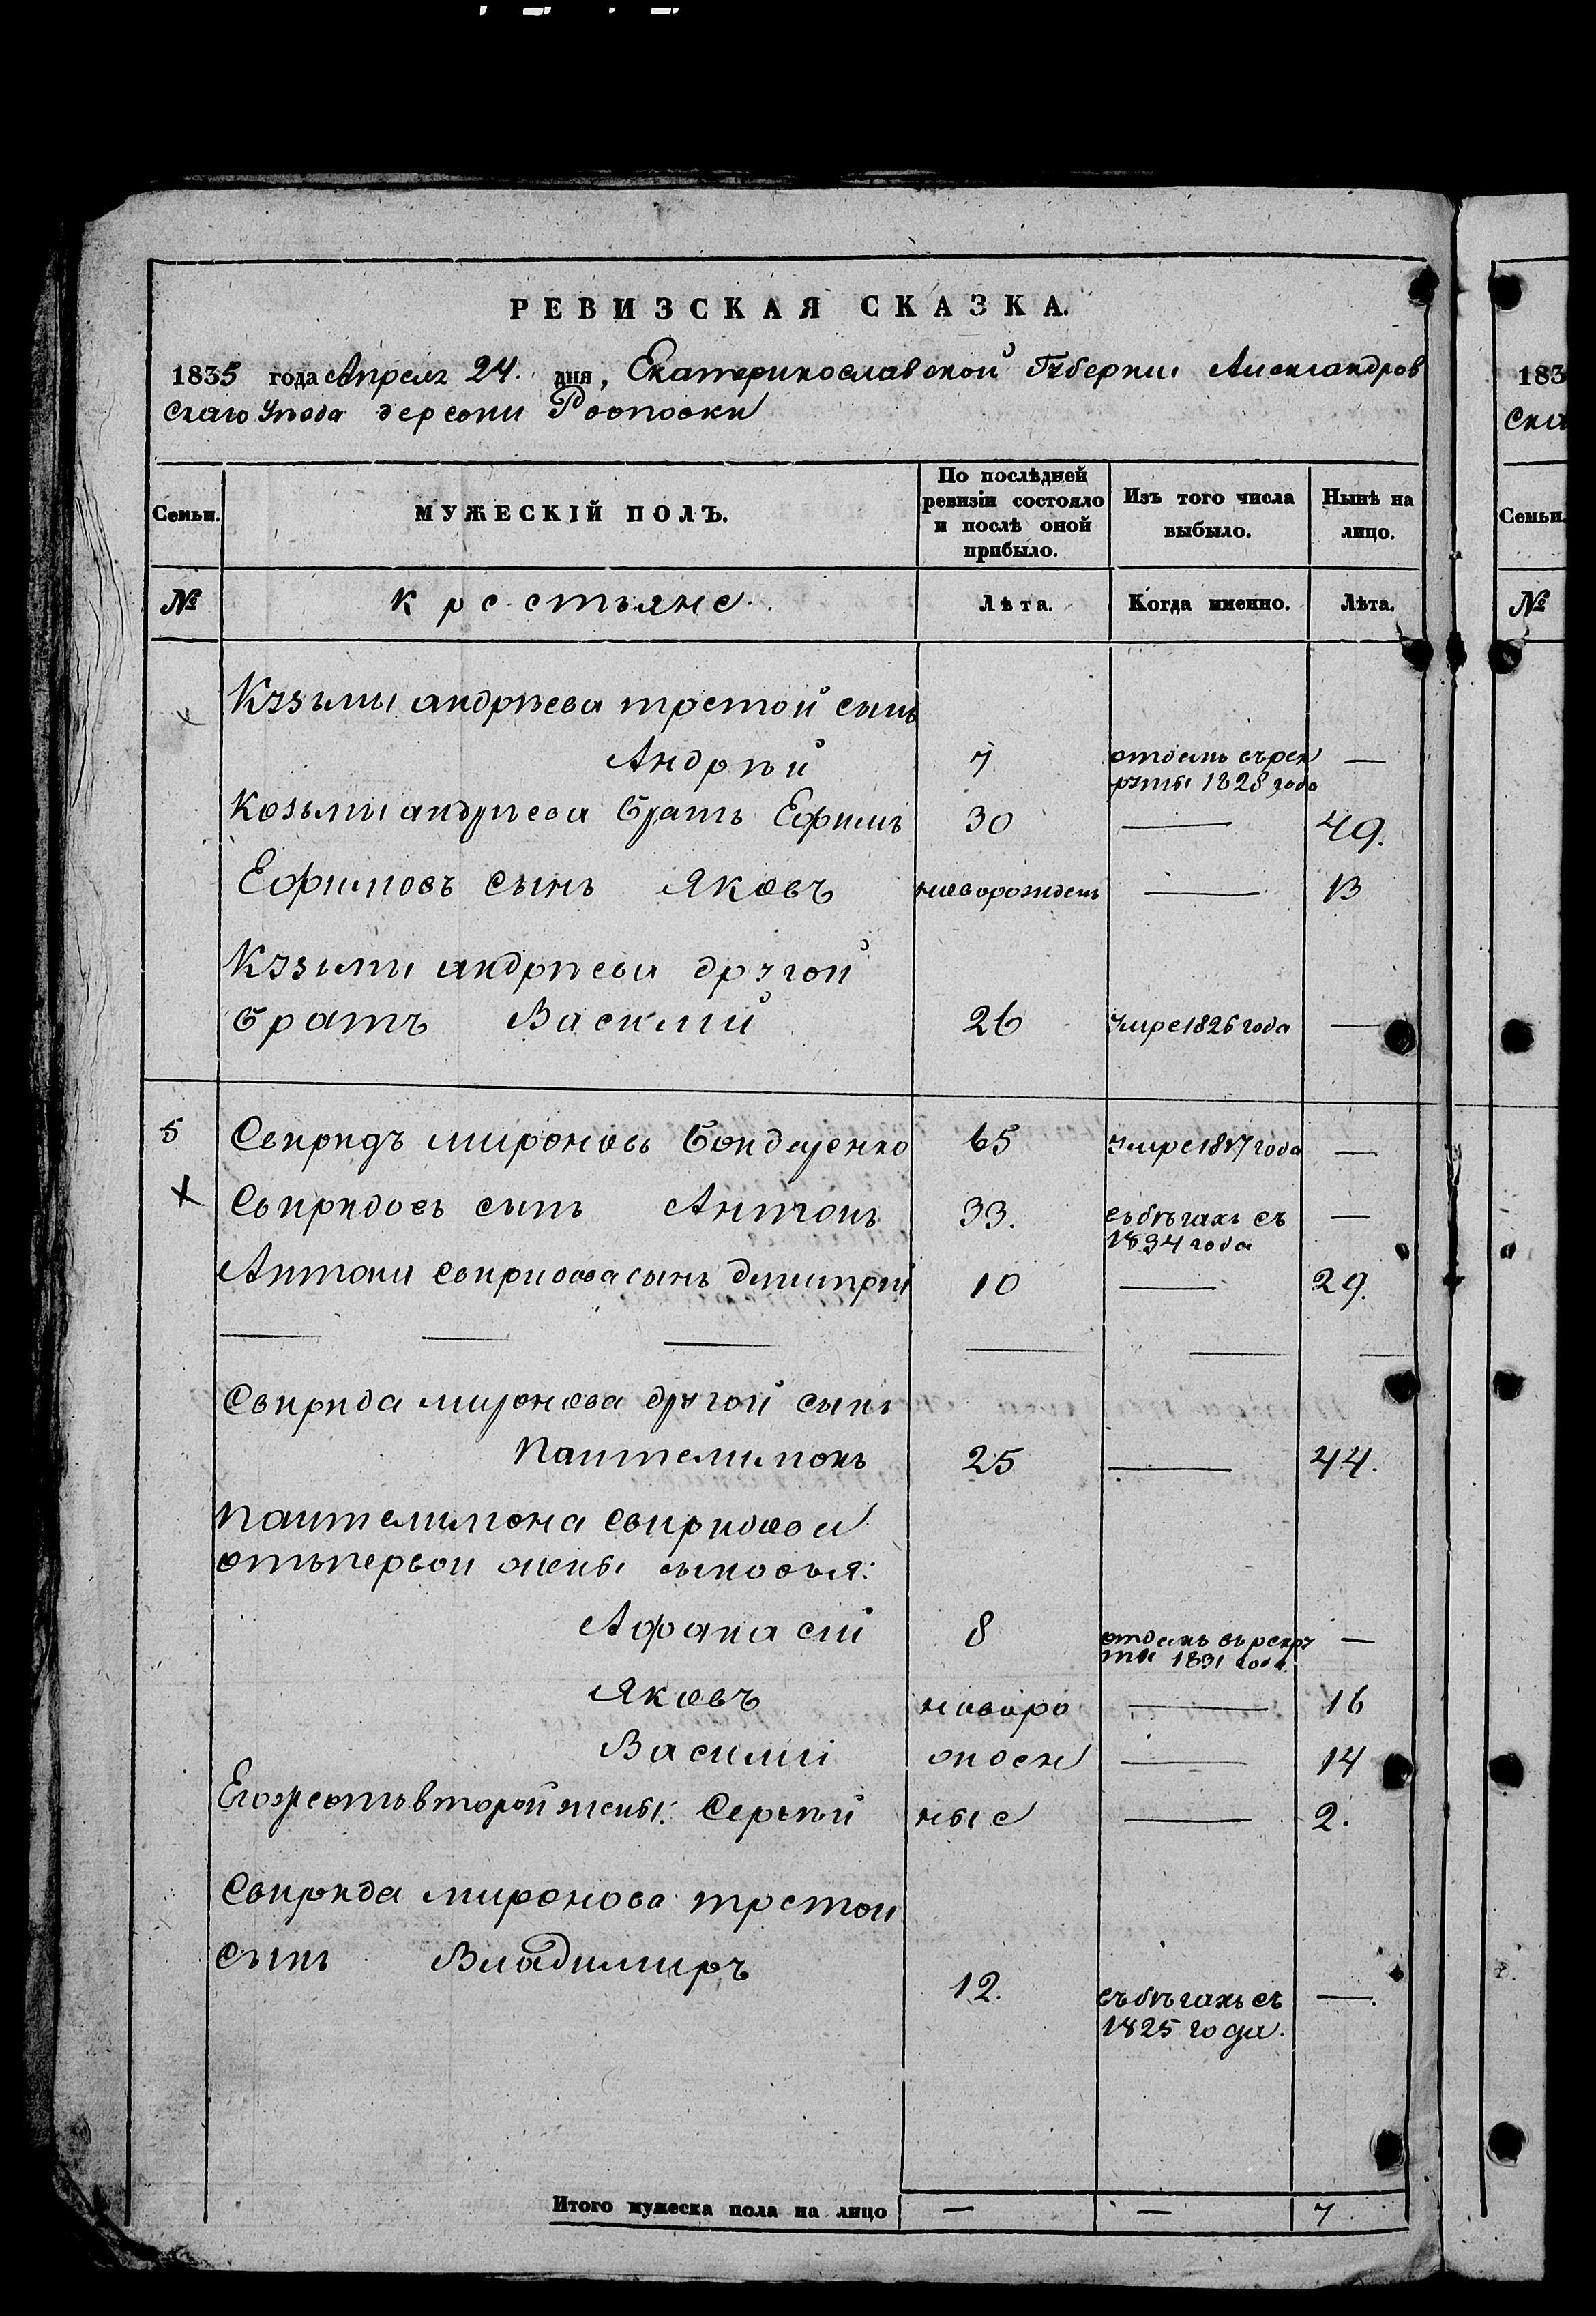 РЕВИЗСКАЯ СКАЗКА.
1835 года Апреля 24. дня, Екатеринославской Губернии Александров
скаго Уезда деревни
183
Ска
Семьи.
МУЖЕСКІЙ ПОЛЪ.
По послѣдней ревизіи состояло и послѣ оной прибыло.
Изъ того числа выбыло.
Нынѣ на лицо.
Семьи.
№
Крестьяне.
Лѣта.
Когда именно.
Лѣта.
№
Кузьмы андрѣева третой сынъ
Андрѣй 7 отданъ въ рек
руты 1828 года —
Козьмы андрѣева братъ Ефимъ 30 — 49.
Ефимовъ сынъ Яковъ новорожденъ — 13
Кузьмы андрѣева другой
братъ Василий 26 умре 1826 года —
5 Свиридъ мироновъ Бондаренко 65 умре 1817 года —
Х Свиридовъ сынъ Антонъ 33. въ бѣгахъ съ
1834 года —
Антона Свиридова сынъ дмитрий 10 — 29.
Свирида миронова другой сынъ
Пантелимонъ 25 — 44.
Пантелимона Свиридова
отъ первои жены сыновья:
Афанасий 8 отданъ въ рекру
ты 1831 года. —
Яковъ новоро — 16
Василий жден — 14
Его же отъ второй жены: Сергѣй ные — 2.
Свирида миронова третои
сынъ Владимиръ 12. въ бѣгахъ съ
1825 года. —.
Итого мужеска пола на лицо — — 7